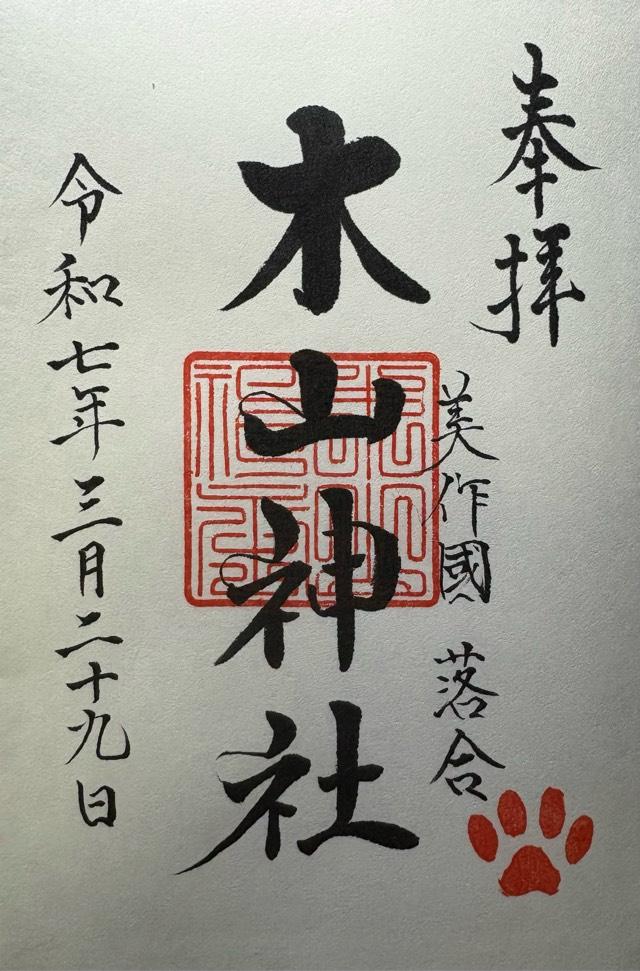 奉拝
美作國 落合
木山神社
令和七年三月二十九日